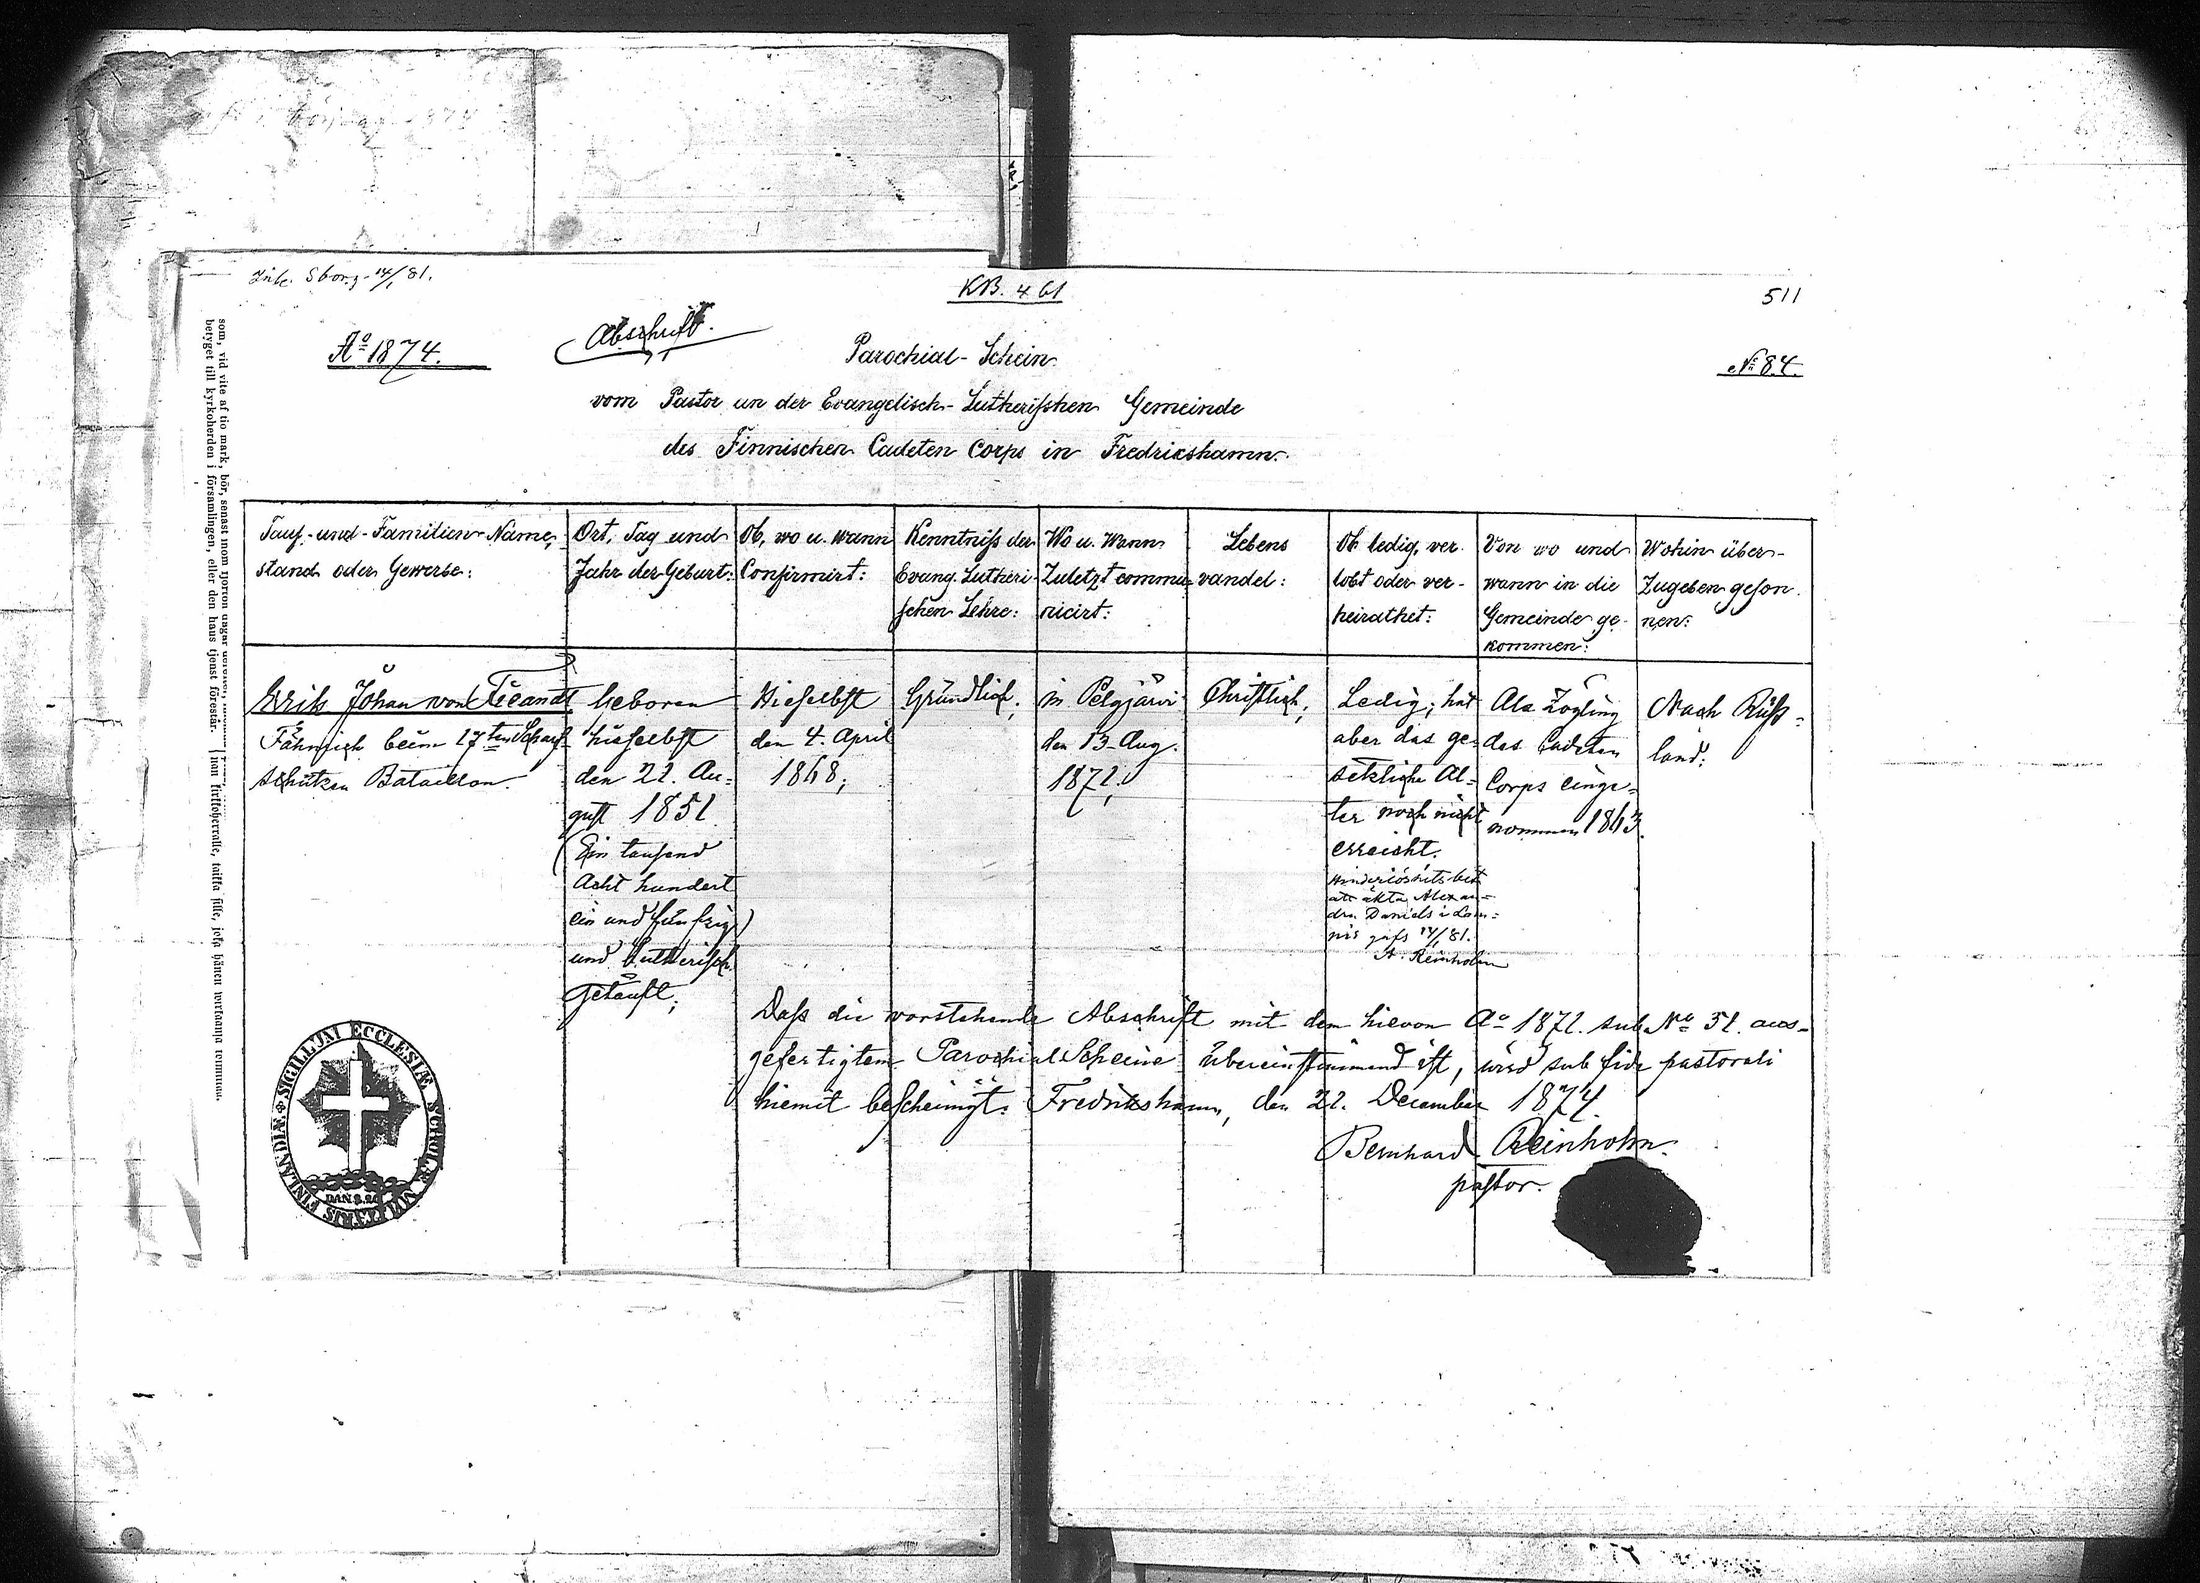 511
KB. 461
Abschrift.
Aº 1874.
Parochial-Schein
Nº 84.
vom Pastor an der Evangelisch-Lutherischen Gemeinde
des Finnischen Cadeten Corps in Fredrikshamn.
Tauf-und-Familien-Name,
stand oder Gewerbe:
Ort, Tag und
Jahr der Geburt:
Ob, wo u. wann
Confirmirt:
Kenntniß der
Evang. Lutheri-
schen Lehre:
Wo u. Wann
Zuletzt commu-
nicirt:
Lebens
vandel:
Ob ledig, ver-
lobt oder ver-
heirathet:
Von wo und
wann in die
Gemeinde ge-
kommen:
Wohin über-
Zugehen geson-
nen:
Erik Johan von
Fähnrich beim 17ten Scharf-
schützen Bataillon.
Geboren
hieselbst
den 22. Au-
gust 1851
(Ein tausend
Acht hundert
ein und fünfzig)
und Lutherisch
getauft;
Hieselbst
den 4. April
1868;
Gründlich;
in Pelgjärvi
den 13. Aug.
1872;
Christlich;
Ledig; hat
aber das ge-
setzliche Al-
ter noch nicht
erreicht.
Hinderlöshets bet.
att äkta Alexan-
dra Daniels i
gafs 14/1 81.
A. Reinholm
Als Zögling
des Cadeten
Corps einge-
nommen 1863.
Nach Ruß-
land.
Daß die vorstehende Abschrift mit dem hievon Aº 1872 sub Nº 51. aus-
gefertigtem Parochial Scheine übereinstimmend ist, wird sub fide pastorali
hiemit bescheinigt. Fredrikshamn, den 22. December 1874.
Bernhard Reinholm.
pastor.
SIGILLUM ECCLESIÆ SCHOLÆ MILITARIS FINLANDIÆ
DAN
som, vid vite af tio mark, bör, senast inom fjorton dagar
betyget till kyrkoherden i församlingen, eller den hans tjenst förestår.